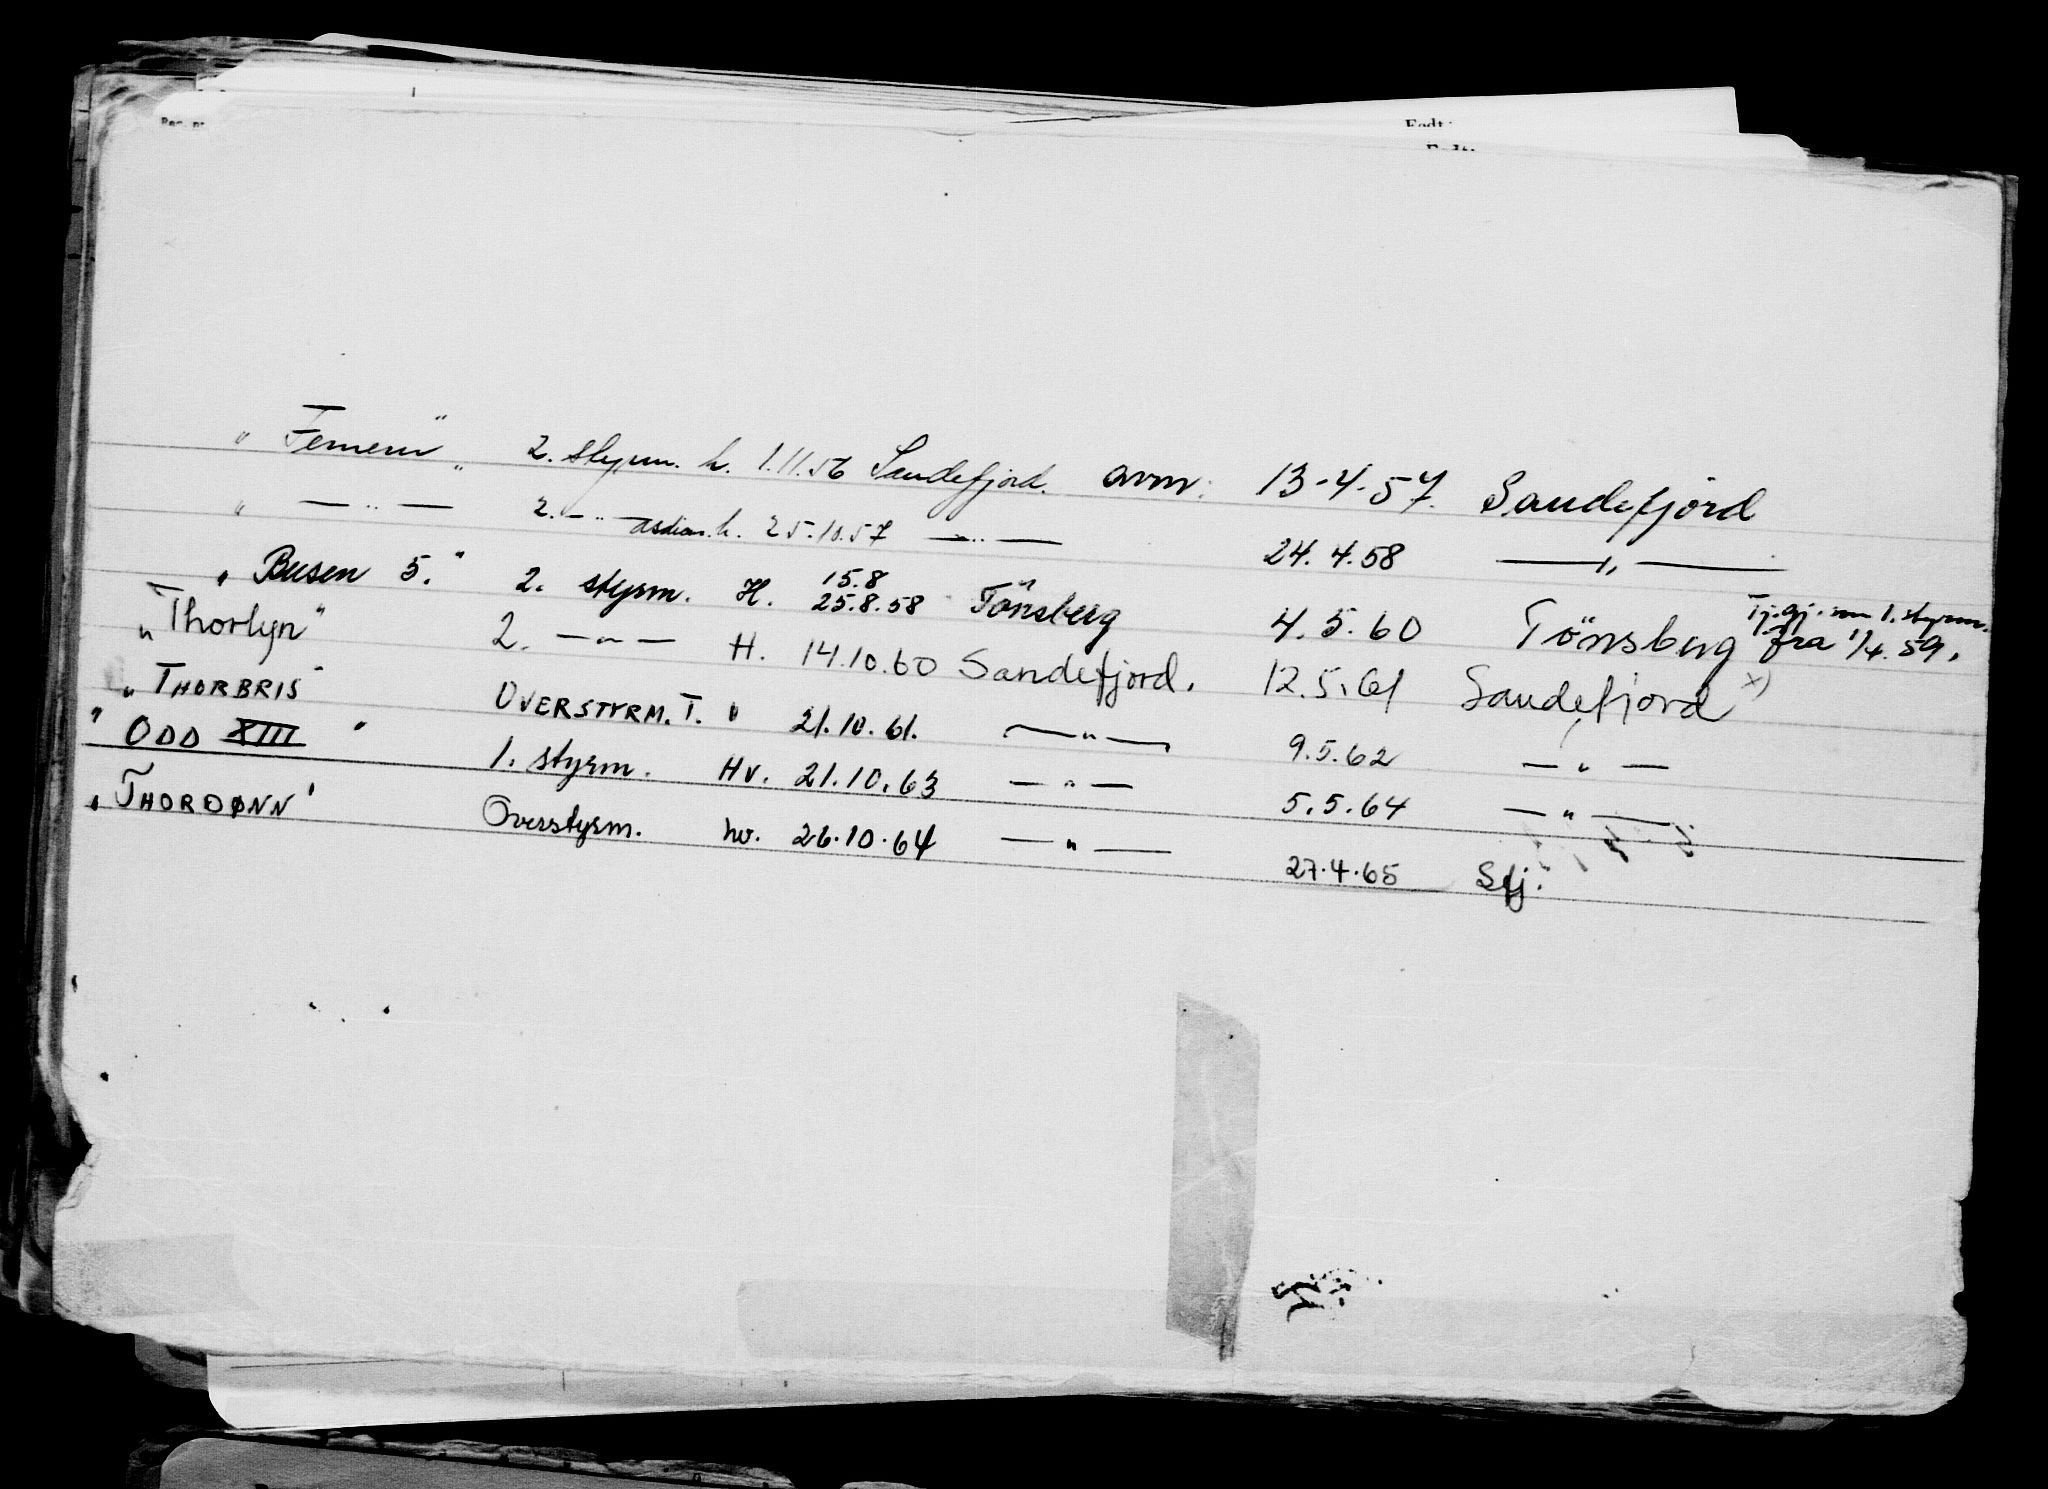 Født
Født:
"Fernern" 2. styrm. h. 1.11.56 Sandefjord. avm. 13-4-57. Sandefjord
" — " — 2. — " — h. 25.10.57 — " — 24.4.58 — " —
15.8
"Busen 5." 2. styrm. H. 25.8.58 Tönsberg 4.5.60 Tönsberg Tj.gj. som 1. styrm. fra 1/4.59.
"Thorlyn" 2. — " — H. 14.10.60 Sandefjord. 12.5.61 Sandefjord x)
"THORBRIS" OVERSTYRM. T. " 21.10.61. — " — 9.5.62 — " —
"ODD XIII" 1. styrm. Hv. 21.10.63 — " — 5.5.64 — " —
"THORDØNN" Overstyrm. hv. 26.10.64 — " — 27.4.65 Sfj.